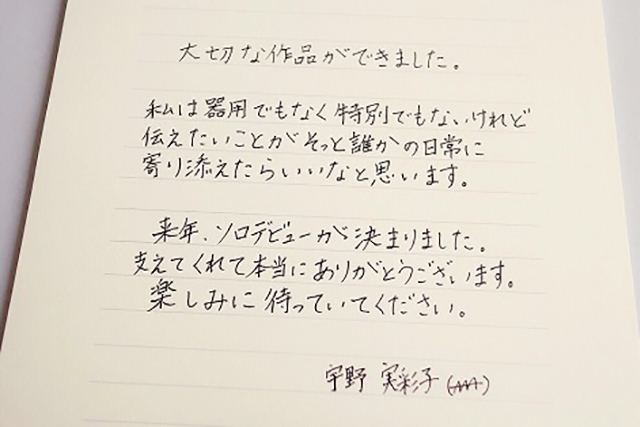 大切な作品ができました。
私は器用でもなく特別でもないけれど
伝えたいことがそっと誰かの日常に
寄り添えたらいいなと思います。
来年、ソロデビューが決まりました。
支えてくれて本当にありがとうございます。
楽しみに待っていてください。
宇野 実彩子 (AAA)